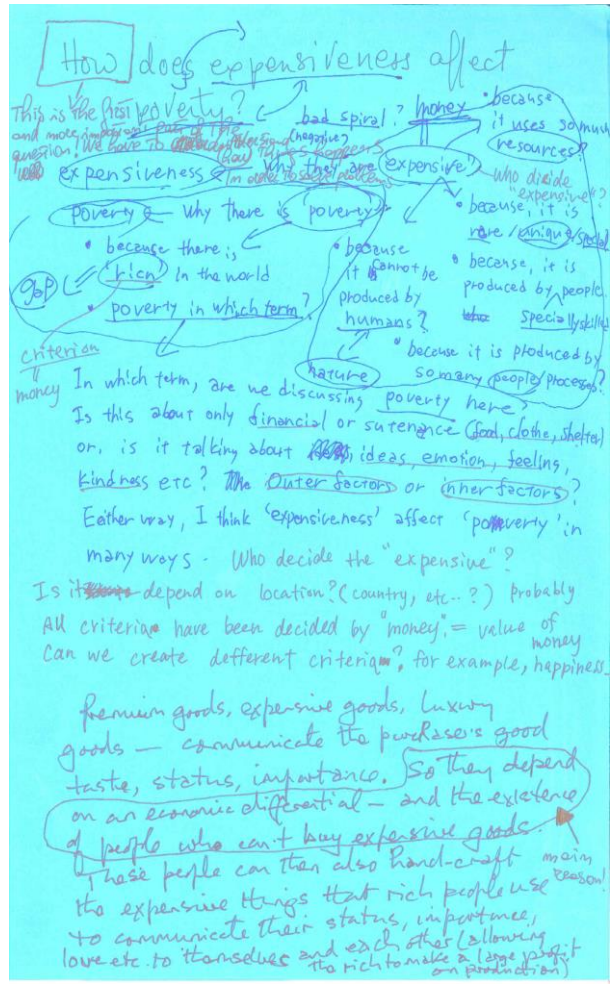 How does expensiveness affect
poverty?
This is the first
and more important part of the
question! We have to understand
how this happens
in order to solve problems
bad spiral?
(negative)
money
expensiveness
why they are "expensive"
• because
it uses so much
resources?
who dicide
"expensive"?
• because, it is
rare/unique/special
• because, it is
produced by people
specially skilled
• because it is produced by
so many people/processes?
poverty why there is poverty
• because there is
"rich" in the world
gap
• poverty in which term?
• because
it cannot be
produced by
humans?
nature
criterion
money
In which term, are we discussing poverty here?
Is this about only financial or sutenance (food, clothe, shelter)
or, is it talking about ideas, emotion, feeling,
kindness etc? Outer factors or inner factors?
Eather way, I think 'expensiveness' affect 'poverty' in
many ways. Who decide the "expensive"?
Is it depend on location? (country, etc..?) probably
All criteria have been decided by "money". = value of
money
Can we create defferent criteria? for example, happiness.
Premium goods, expensive goods, luxury
goods — communicate the purchaser's good
taste, status, importance. So they depend
on an economic differential — and the existence
of people who can't buy expensive goods.
main
reason!
These people can then also hand-craft
the expensive things that rich people use
to communicate their status, importance,
love etc. to themselves and each other (allowing
the rich to make a large profit
on production)